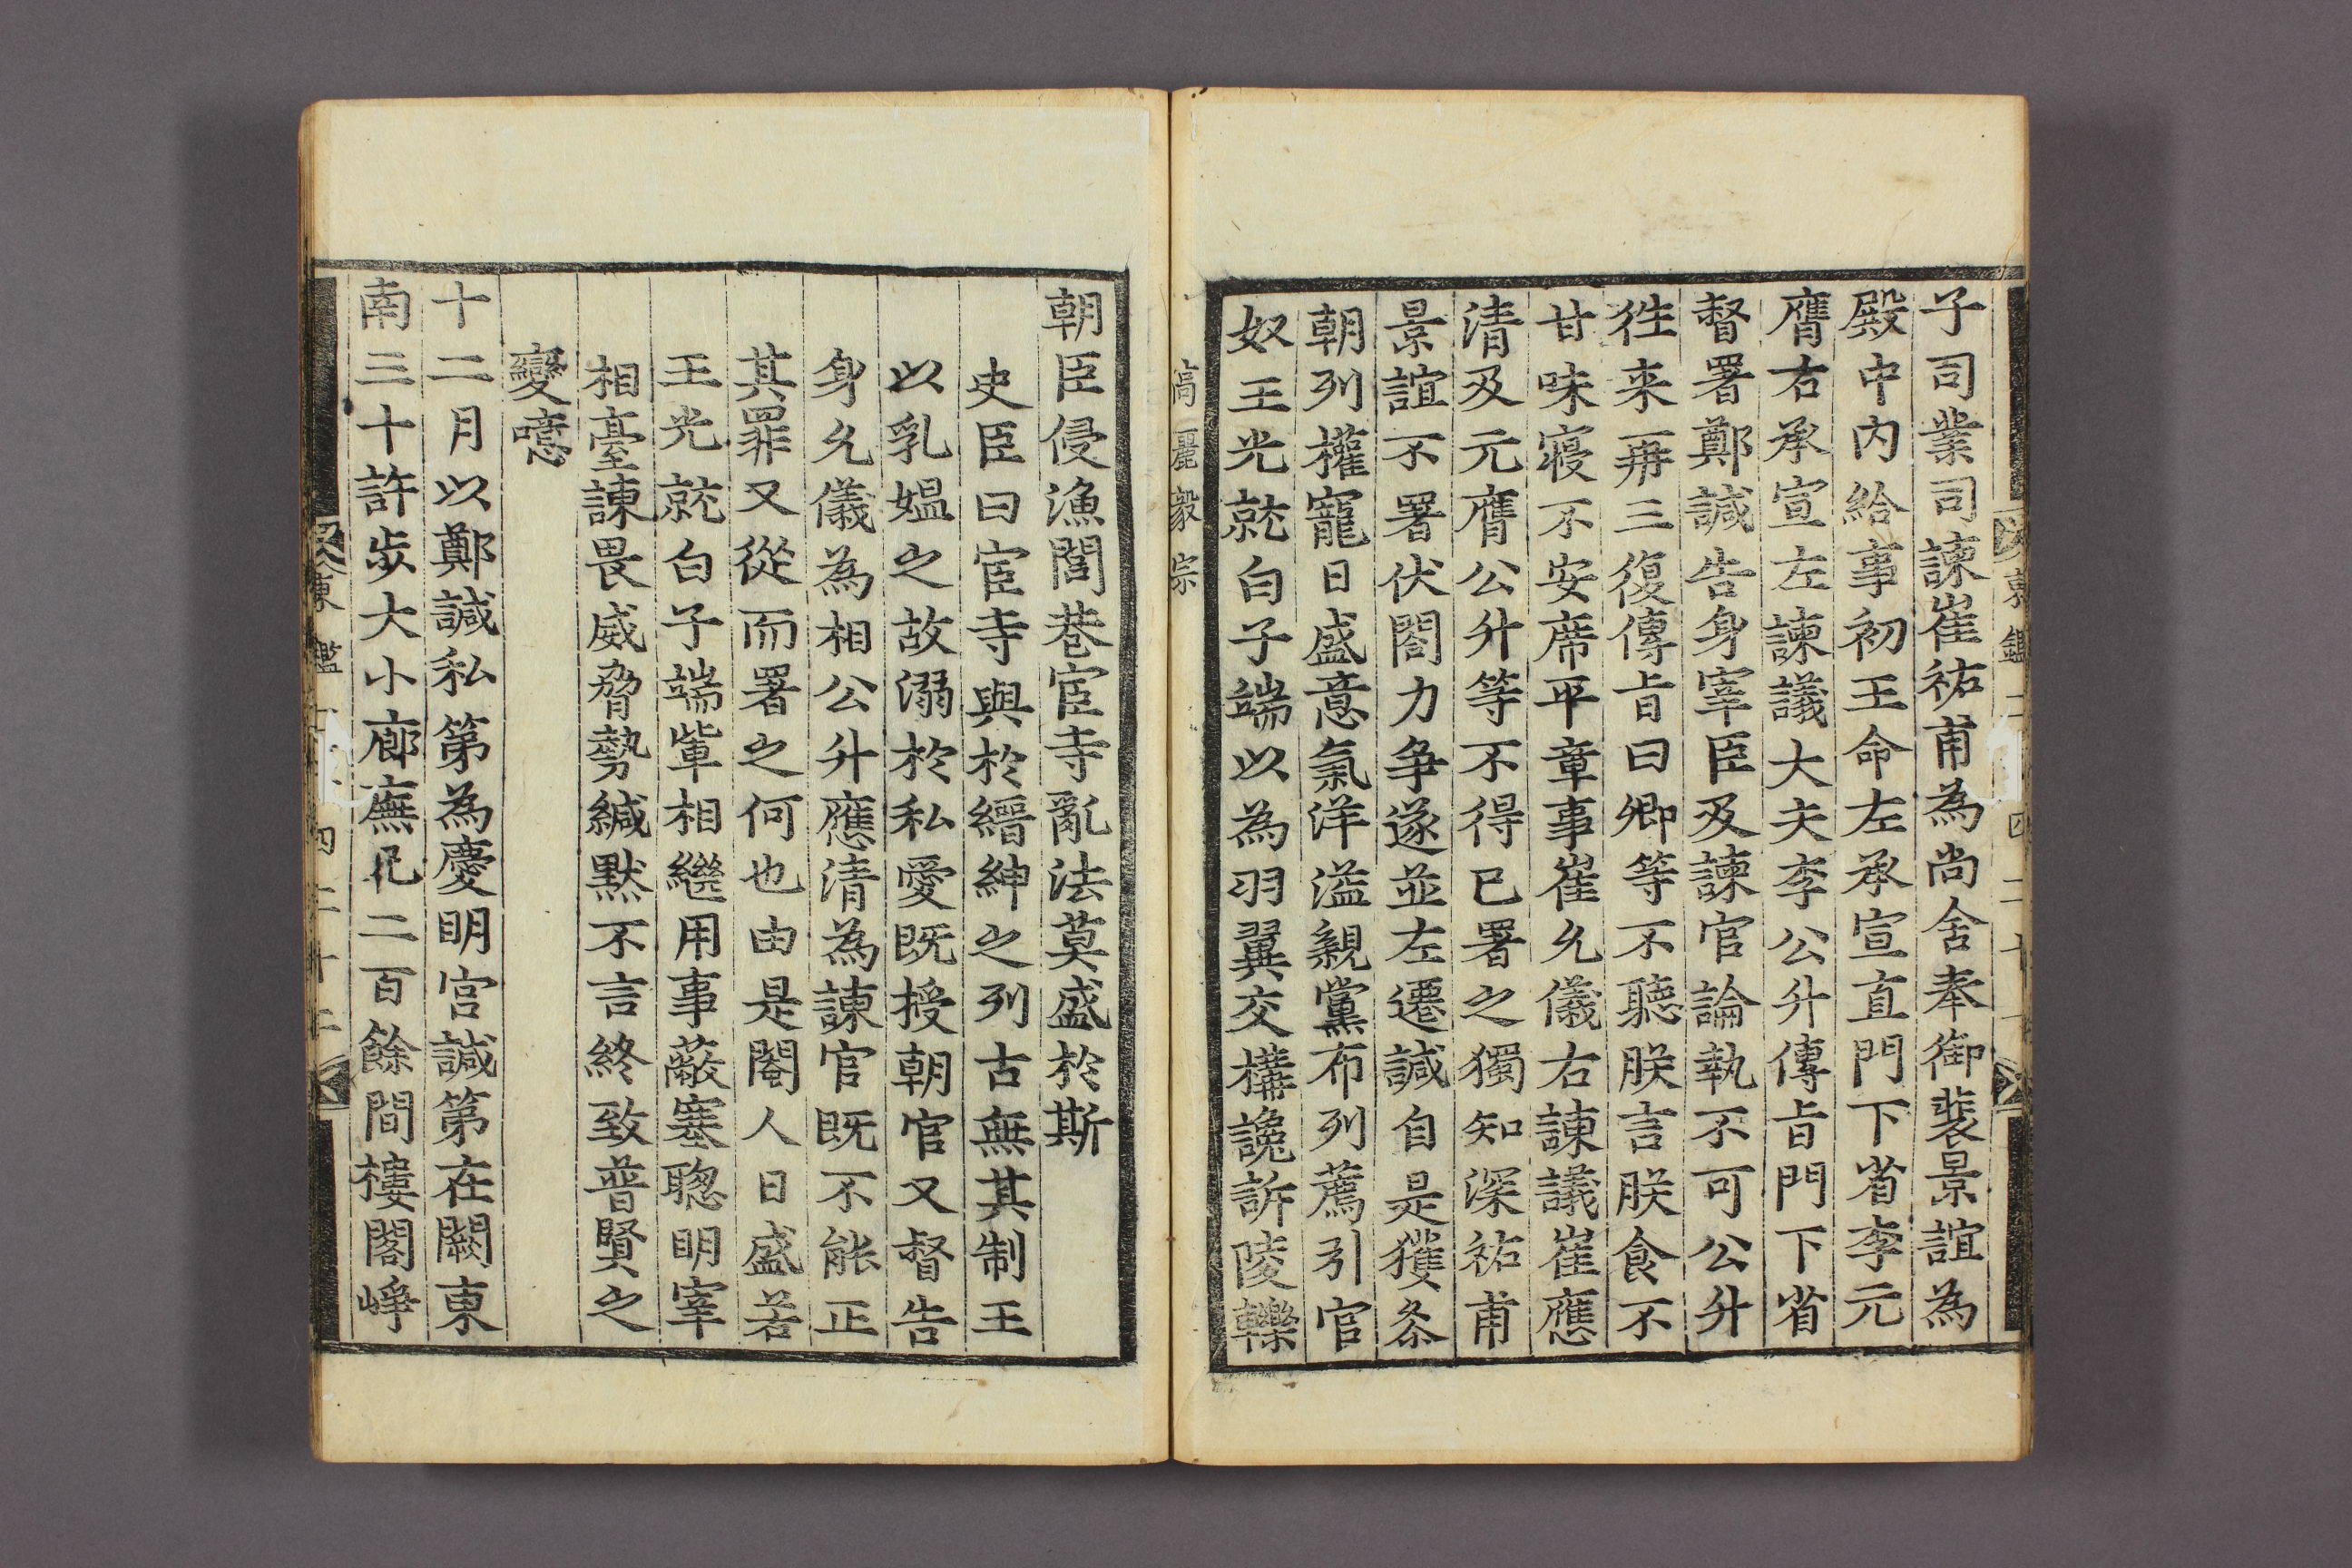 子司業司諫崔祐甫為尚舍奉御裴景誼為
殿中內給事初王命左承宣直門下省李元
膺右承宣左諫議大夫李公升傳旨門下省
督署鄭諴告身宰臣及諫官論執不可公升
徃来再三復傳旨曰卿等不聽朕言朕食不
甘味寢不安席平章事崔允儀右諫議崔應
清及元膺公升等不得已署之獨知深祐甫
景誼不署伏閤力争遂並左遷諴自是獲叅
朝列權寵日盛意氣洋溢親黨布列薦引官
奴王光就白子端以為羽翼交構讒訴陵轢
高麗毅宗
朝臣侵漁閭巷宦寺亂法莫盛於斯
史臣曰宦寺與於縉紳之列古無其制王
以乳媼之故溺於私愛既授朝官又督告
身允儀為相公升應清為諫官既不能正
其罪又從而署之何也由是閹人日盛若
王光就白子端軰相繼用事蔽塞聦明宰
相臺諫畏威脅勢緘黙不言終致普賢之
變噫
十二月以鄭諴私第為慶明宮諴第在闕東
南三十許步大小廊廡凡二百餘間樓閣崢